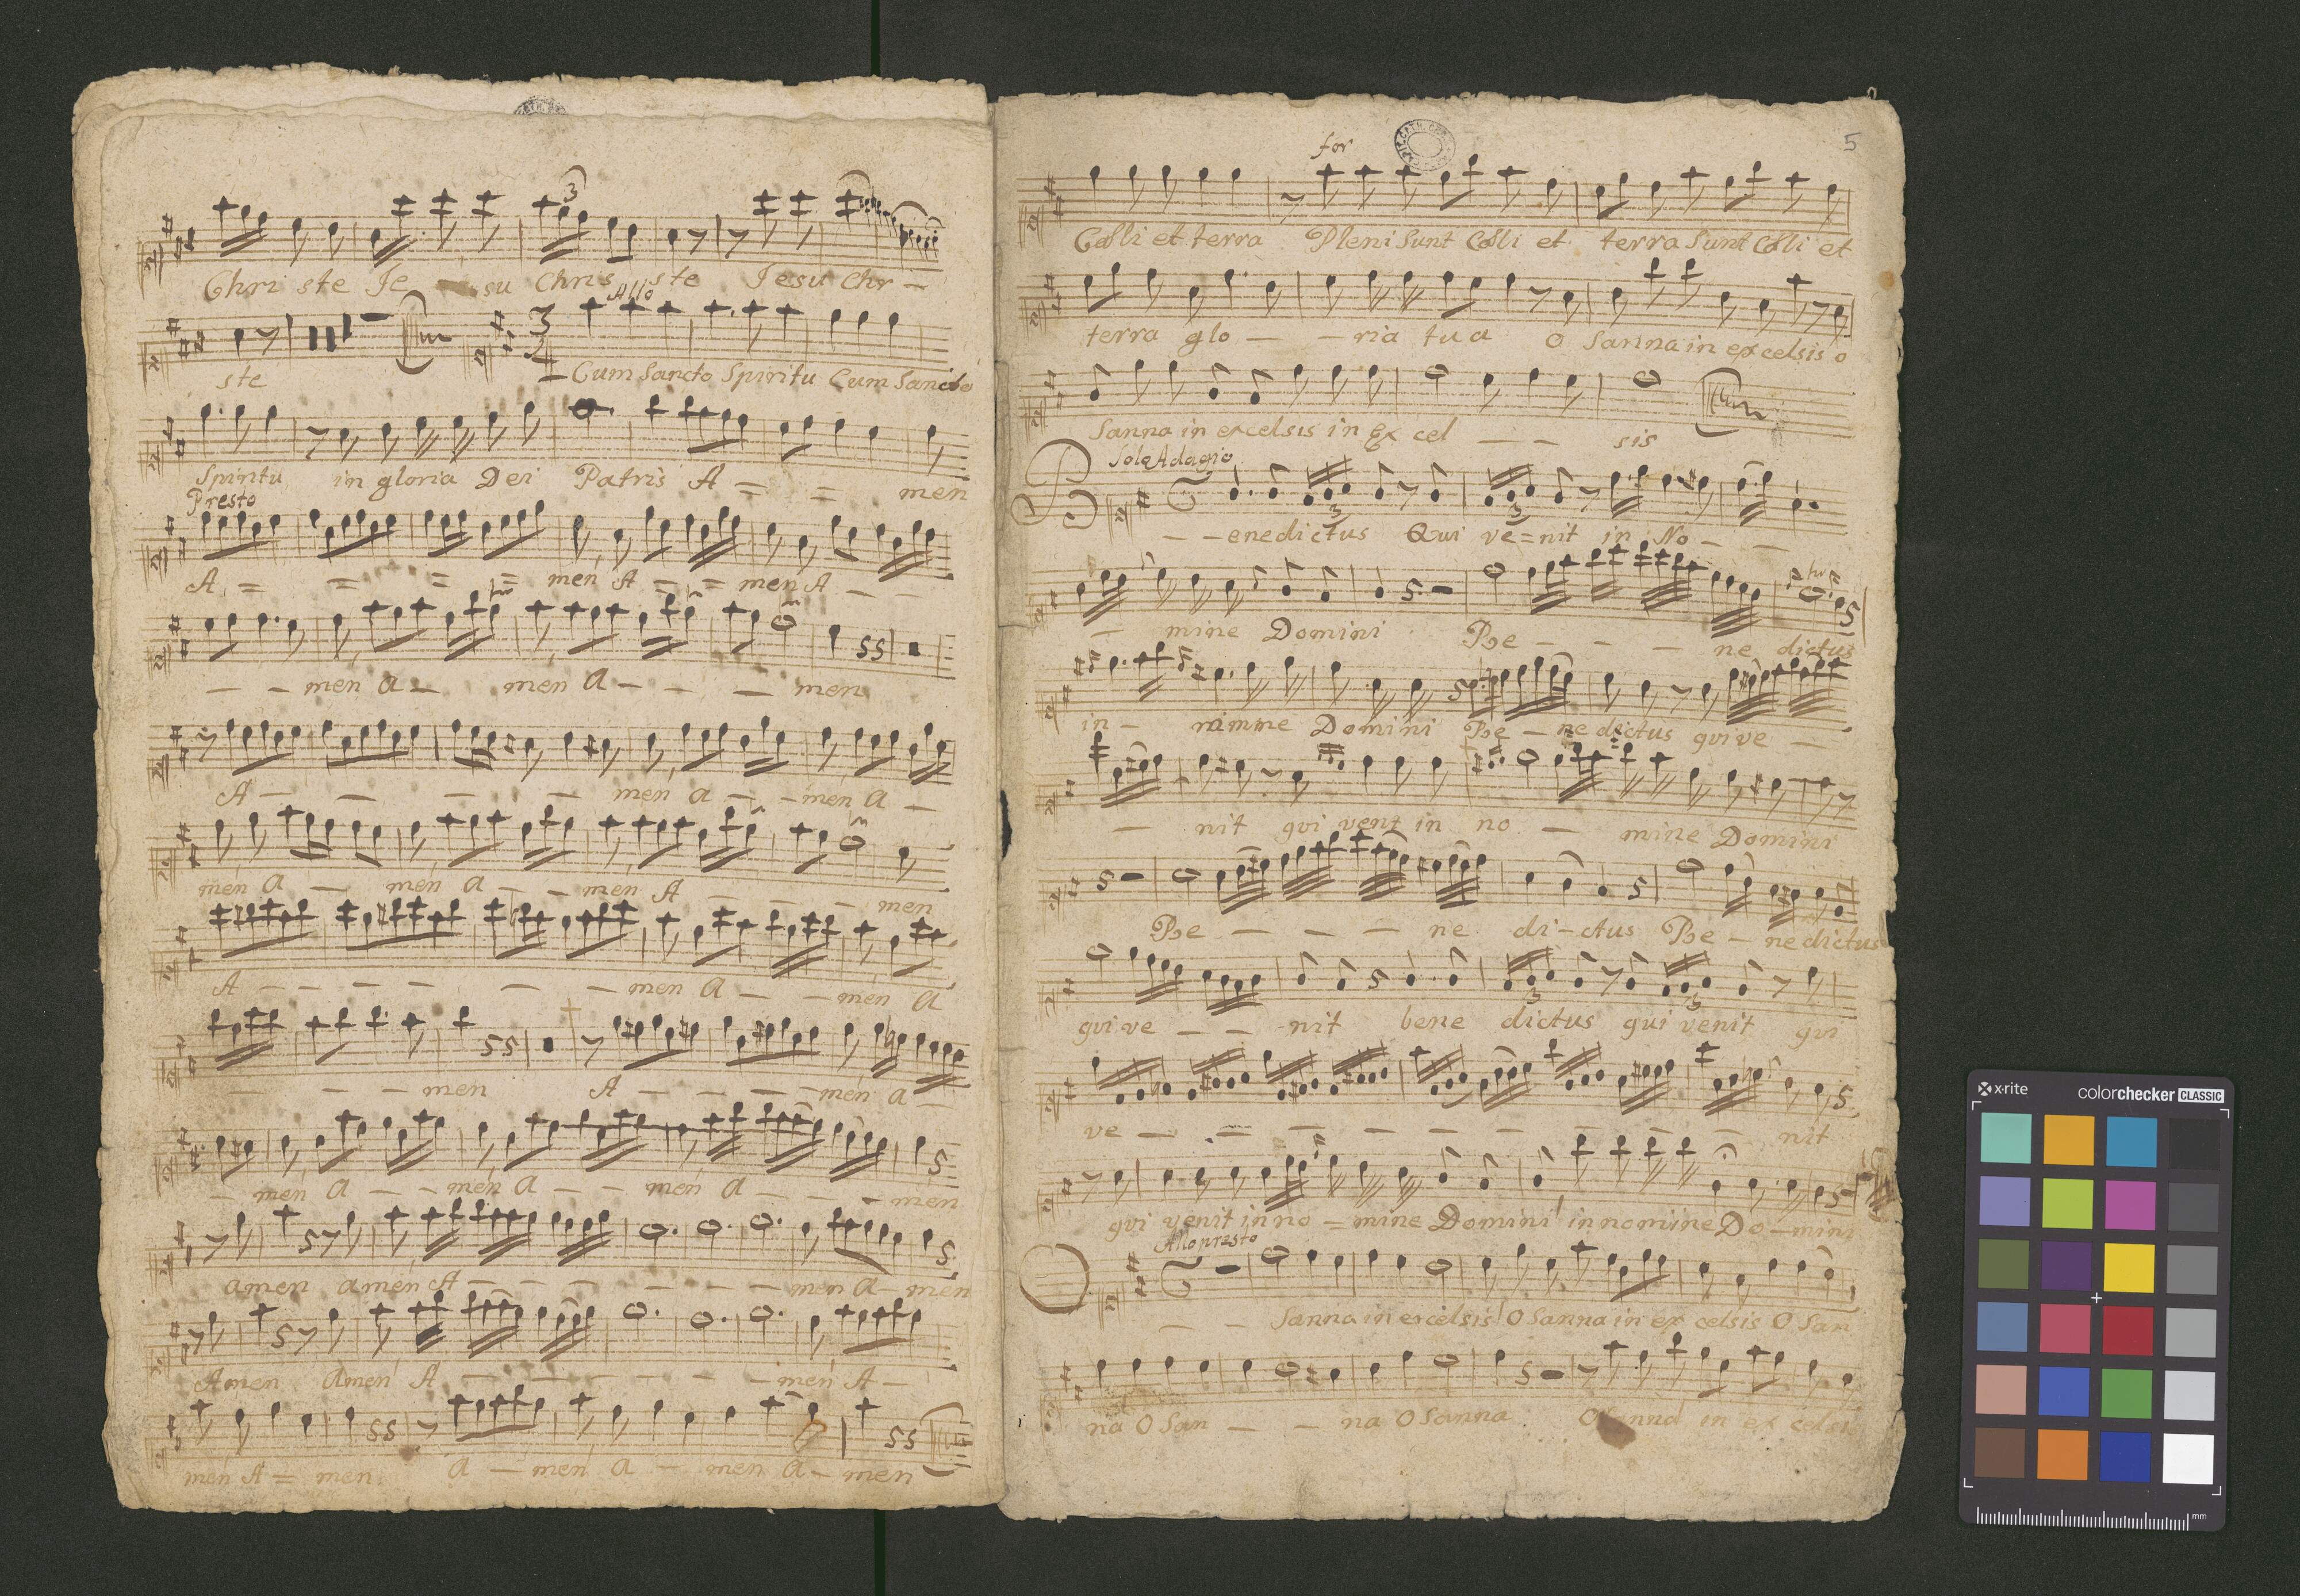 3
Chri ste Je su Chris ste Jesu Chr –
Allo
3
ste Cum Sancto Spiritu Cum Sancto
Spiritu in gloria Dei Patris A = = men
Presto
A = = = = men A = = men A –
– – men a – men a – – – men
A – – – – men a – – men a –
men a – men a – – men A – – – men
A – – – – – – men a – – men a
– – – men A – – – – men a –
– men a – – men a – – men a – – – men
amen amen A – – – – – – men a – men
Amen amen A – – – – – – men A –
men A = men a – men a – men a – men
5
for
Cœli et terra Pleni Sunt Cœli et terra Sunt Cœli et
terra glo – – ria tua O Sanna in excelsis o
Sanna in excelsis in Ex cel – – sis
Solo Adagio
B – – enedictus Qui ve = nit in No – –
3
3
– mine Domini Be – – – ne dictus
tr
in – nimine Domini Be – ne dictus qui ve –
– nit qui venit in no – mine Domini
Be – – – ne di – ctus Be – ne dictus
qui ve – – nit bene dictus qui venit qui
3
3
ve – – – – – – – nit
qui venit in no = mine Domini in nomine Do – mini
Allo presto
O – – Sanna in excelsis O Sanna in ex celsis O San
na O San – – na O Sanna O Sanna in ex celsi
x-rite
colorchecker CLASSIC
mm